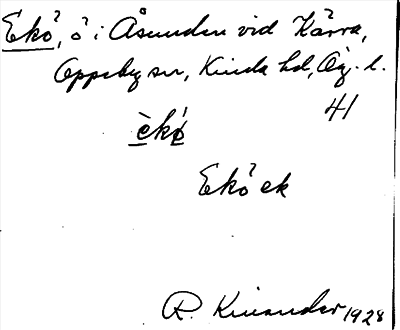 Ekö, ö i Åsunden vid Kärra,
Oppeby sn, Kinda hd, Ög. l.
41
èkö́
Ekö ek
R. Kinander 1928